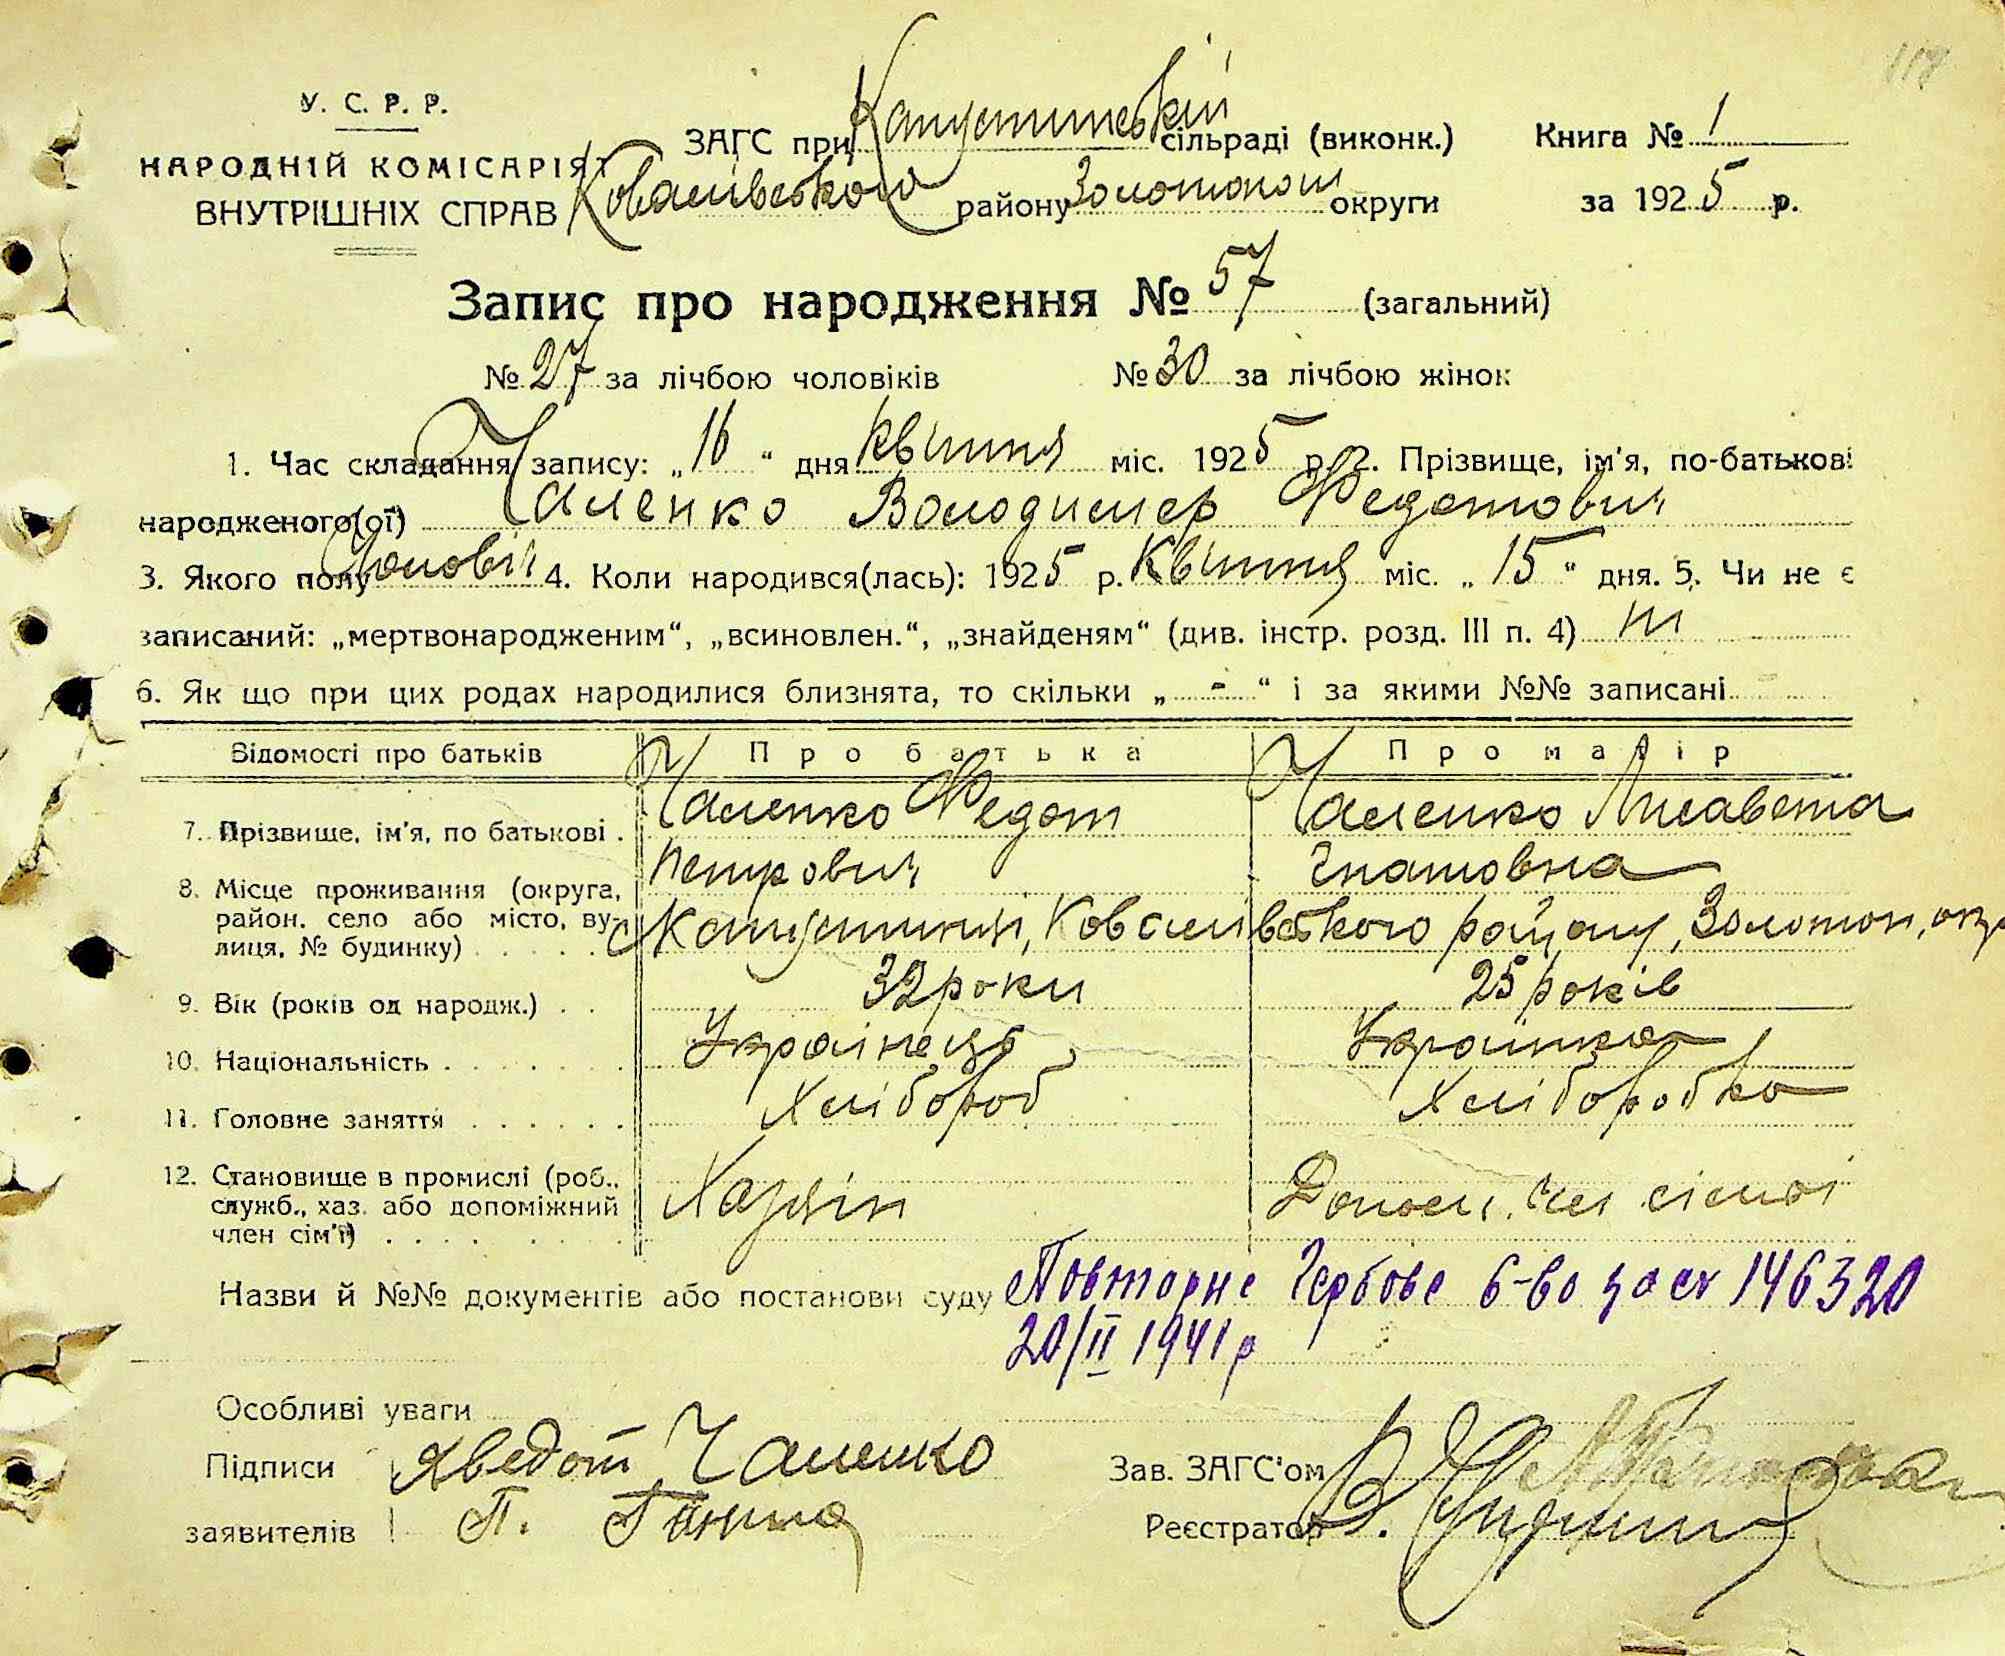 118
У. С. Р. Р.
НАРОДНІЙ КОМІСАРІЯТ
ВНУТРІШНІХ СПРАВ
ЗАГС при Капустинській сільраді (виконк.)
Ковалівського району Золотонош округи
Книга № 1
за 1925 р.
Запис про народження № 57 (загальний)
№ 27 за лічбою чоловіків № 30 за лічбою жінок
1. Час складання запису: „16“ дня квітня міс. 1925 р. 2. Прізвище, ім'я, по-батькові
народженого(ої) Чаленко Володимер Федотович
3. Якого полу чоловіч 4. Коли народився(лась): 1925 р. Квітня міс. „15“ дня. 5. Чи не є
записаний: „мертвонародженим“, „всиновлен.“, „знайденям“ (див. інстр. розд. III п. 4)
6. Як що при цих родах народилися близнята, то скільки „ - “ і за якими №№ записані -
Відомості про батьків Про батька Про матір
7. Прізвище, ім'я, по батькові . Чаленко Федот Петрович Чаленко Лисавета Гнатовна
8. Місце проживання (округа,
район. село або місто, ву-
лиця, № будинку) . . . . . с Капустинці, Ковалівського району, Золотон. окр
9. Вік (років од народж.) . . 32 роки 25 років
10. Національність . . . . . . . Українець Українка
11. Головне заняття . . . . . . Хлібороб Хліборобка
12. Становище в промислі (роб.,
служб., хаз. або допоміжний
член сім'ї) . . . . . . . . Хазяїн Допом. чл сімї
Назви й №№ документів або постанови суду Повторне Гербове с-во за сх 146320
20/II 1941 р
Особливі уваги
Підписи Хведот Чаленко
заявителів П. Ганна
Зав. ЗАГС'ом
Реєстратор В.